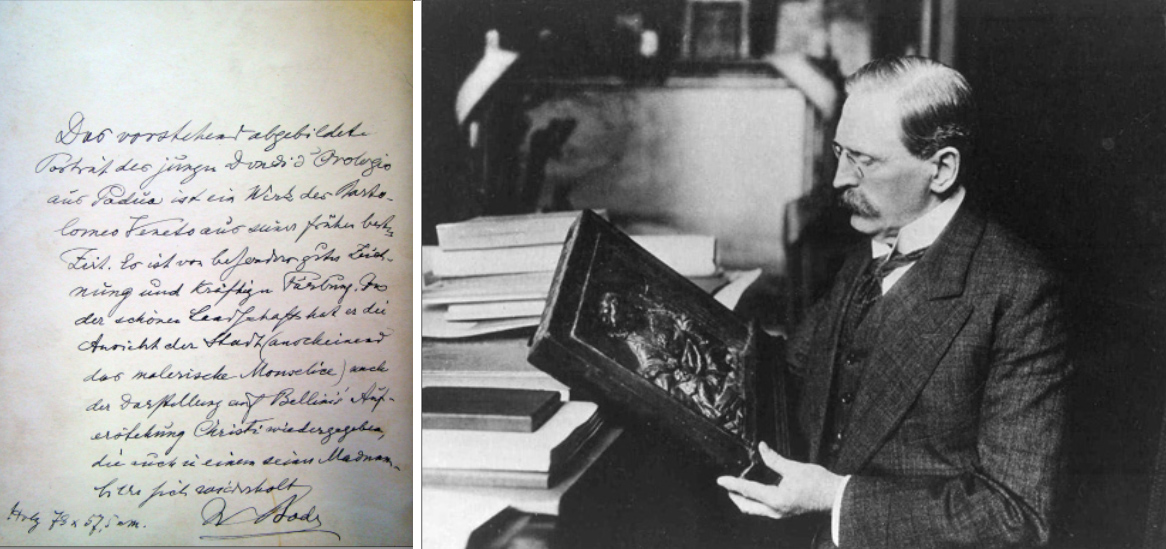 Das vorstehend abgebildete
Porträt des jungen Dondi d'Orologio
aus Padua ist ein Werk des Barto-
lomeo Veneto aus seiner frühen besten
Zeit. Es ist von besonders guter Zeich-
nung und kräftiger Färbung. In
der schönen Landschaft hat er die
Ansicht der Stadt (anscheinend
das malerische Monselice) nach
der Darstellung auf Bellinis' Auf-
erstehung Christi wiedergegeben,
die auch in einem seiner Madonnen-
bilder sich wiederholt
W Bode
Holz 73 x 57,5 cm.